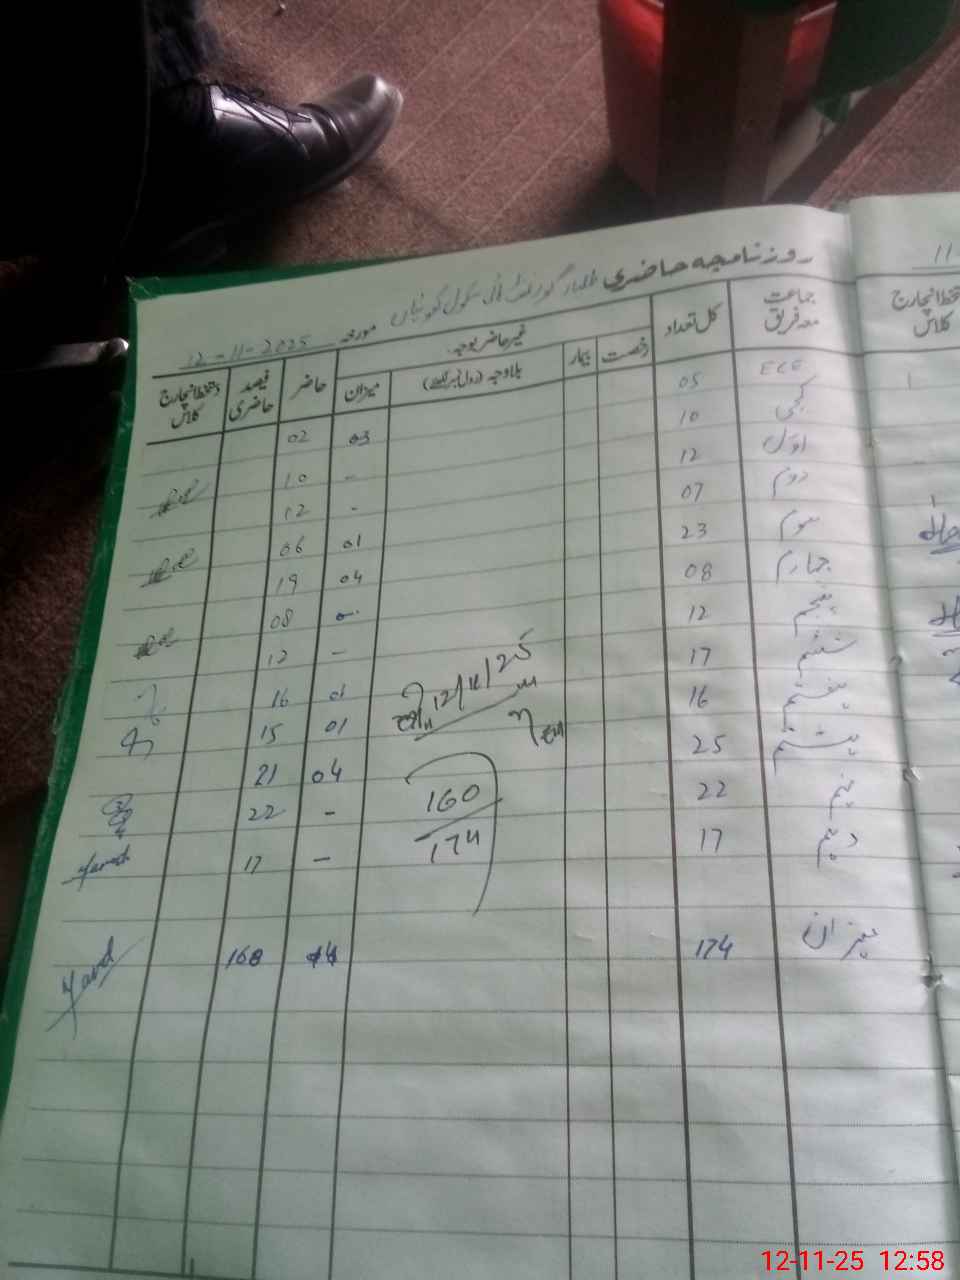 روزنامچہ حاضری طلباء گورنمنٹ ہائی سکول
مورخہ 12-11-2025
جماعت معہ فریق کل تعداد غیر حاضر بوجہ حاضر فیصد حاضری دستخط انچارج کلاس
رخصت بیمار بلاوجہ (رول نمبر لکھیے) میزان
ECE 05 03 02
کچی 10 - 10
اول 12 - 12
دوم 07 01 06
سوم 23 04 19
چہارم 08 - 08
پنجم 12 - 12
ششم 17 01 16
ہفتم 16 01 15
ہشتم 25 04 21
نہم 22 - 22
دہم 17 - 17
12/11/25
160
174
میزان 174 14 160
11-
دستخط انچارج کلاس
12-11-25 12:58